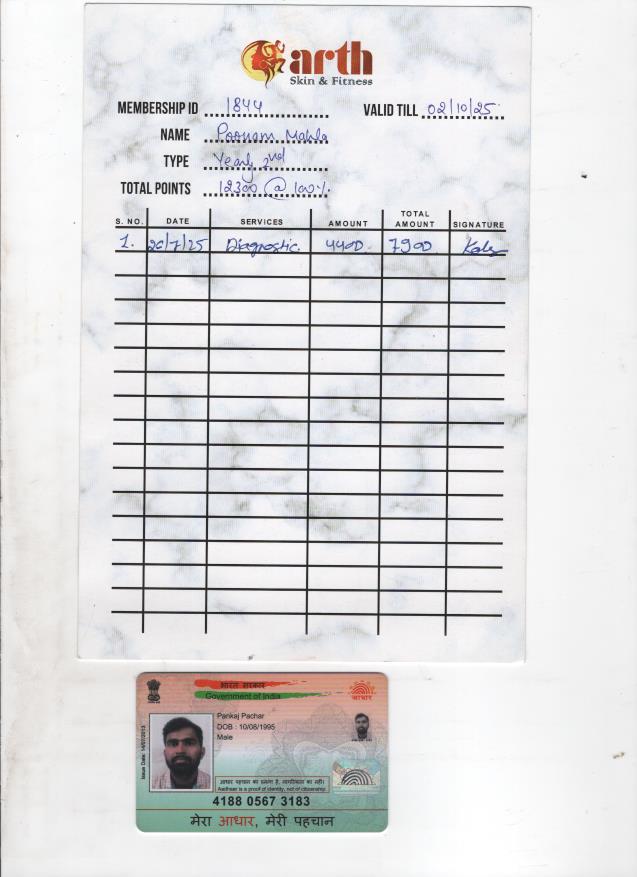 arth
Skin & Fitness
MEMBERSHIP ID 1844 VALID TILL 02/10/25
NAME Poonam Mahla
TYPE Yearly 2nd
TOTAL POINTS 12300 @ 100%
S. NO. DATE SERVICES AMOUNT TOTAL AMOUNT SIGNATURE
1. 20/7/25 Diagnostic. 4400 7900
भारत सरकार
Government of India
आधार
Pankaj Pachar
DOB : 10/08/1995
Male
Issue Date: 14/07/2013
आधार पहचान का प्रमाण है, नागरिकता का नहीं।
Aadhaar is a proof of identity, not of citizenship.
4188 0567 3183
मेरा आधार, मेरी पहचान